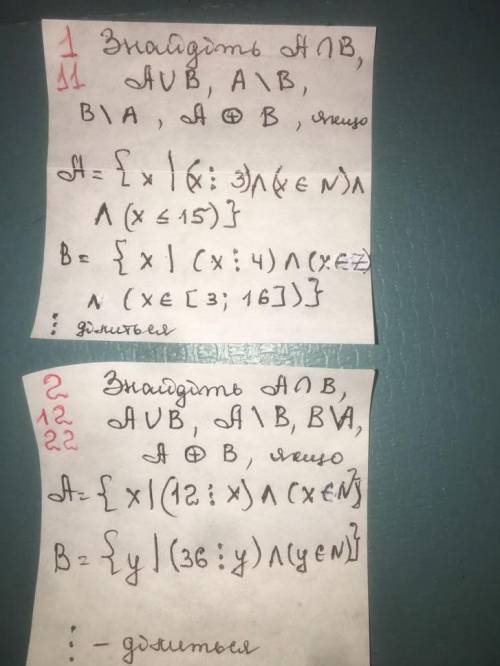 1 Знайдіть A ∩ B,
11 A ∪ B, A \ B,
B \ A, A ⊕ B, якщо
A = { x | (x ⋮ 3) ∧ (x ∈ N) ∧
∧ (x ≤ 15)}
B = { x | (x ⋮ 4) ∧ (x ∈ Z)
∧ (x ∈ [3; 16])}
⋮ ділиться
2 Знайдіть A ∩ B,
12 A ∪ B, A \ B, B \ A,
22 A ⊕ B, якщо
A = { x | (12 ⋮ x) ∧ (x ∈ N)}
B = { y | (36 ⋮ y) ∧ (y ∈ N)}
⋮ – ділиться